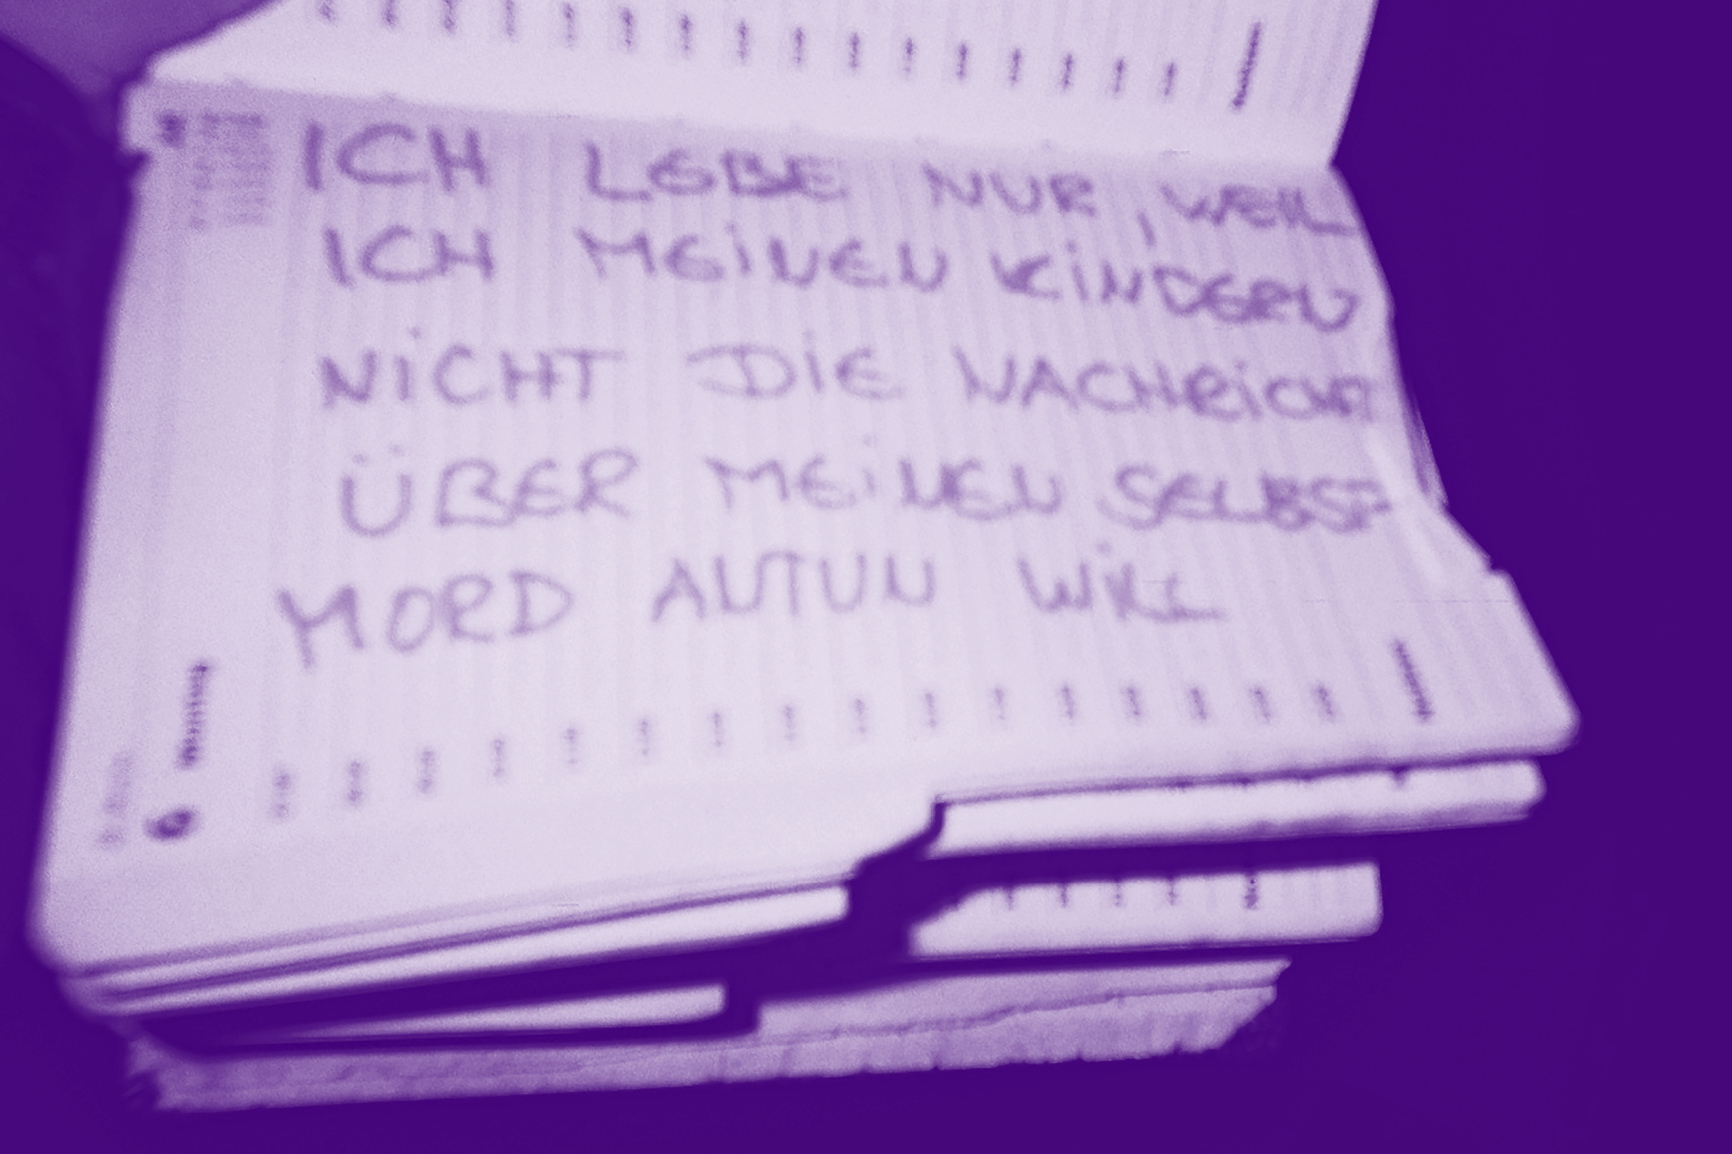 ICH LEBE NUR, WEIL
ICH MEINEN KINDERN
NICHT DIE NACHRICHT
ÜBER MEINEN SELBST
MORD ANTUN WILL